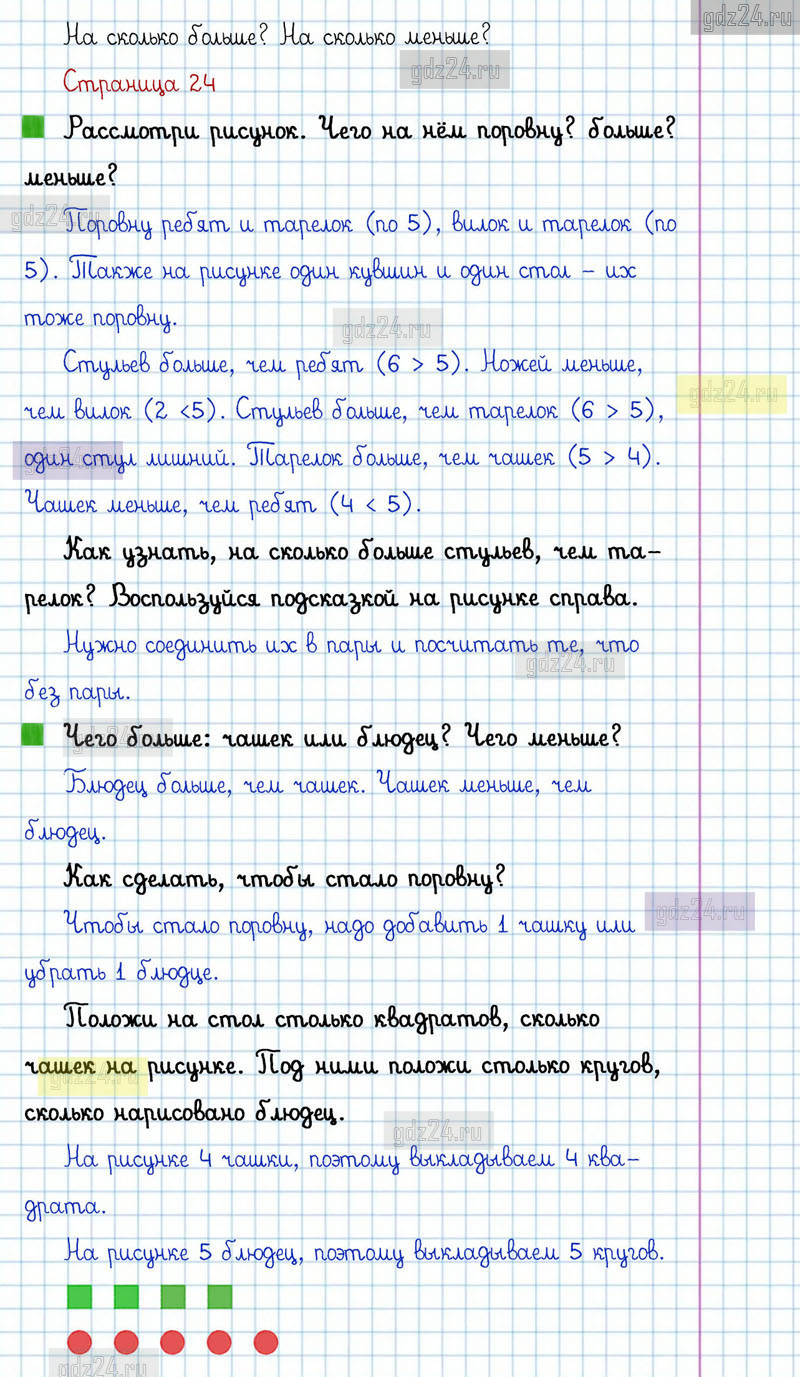 gdz24.ru
На сколько больше? На сколько меньше?
gdz24.ru
Страница 24
Рассмотри рисунок. Чего на нём поровну? больше?
меньше?
gdz24.ru
Поровну ребят и тарелок (по 5), вилок и тарелок (по
5). Также на рисунке один кувшин и один стол – их
тоже поровну.
gdz24.ru
Стульев больше, чем ребят (6 > 5). Ножей меньше,
gdz24.ru
чем вилок (2 <5). Стульев больше, чем тарелок (6 > 5),
один стул лишний. Тарелок больше, чем чашек (5 > 4).
Чашек меньше, чем ребят (4 < 5).
Как узнать, на сколько больше стульев, чем та-
релок? Воспользуйся подсказкой на рисунке справа.
Нужно соединить их в пары и посчитать те, что
gdz24.ru
без пары.
Чего больше: чашек или блюдец? Чего меньше?
Блюдец больше, чем чашек. Чашек меньше, чем
блюдец.
Как сделать, чтобы стало поровну?
gdz24.ru
Чтобы стало поровну, надо добавить 1 чашку или
убрать 1 блюдце.
Положи на стол столько квадратов, сколько
чашек на рисунке. Под ними положи столько кругов,
gdz24.ru
сколько нарисовано блюдец.
gdz24.ru
На рисунке 4 чашки, поэтому выкладываем 4 ква-
драта.
На рисунке 5 блюдец, поэтому выкладываем 5 кругов.
gdz24.ru